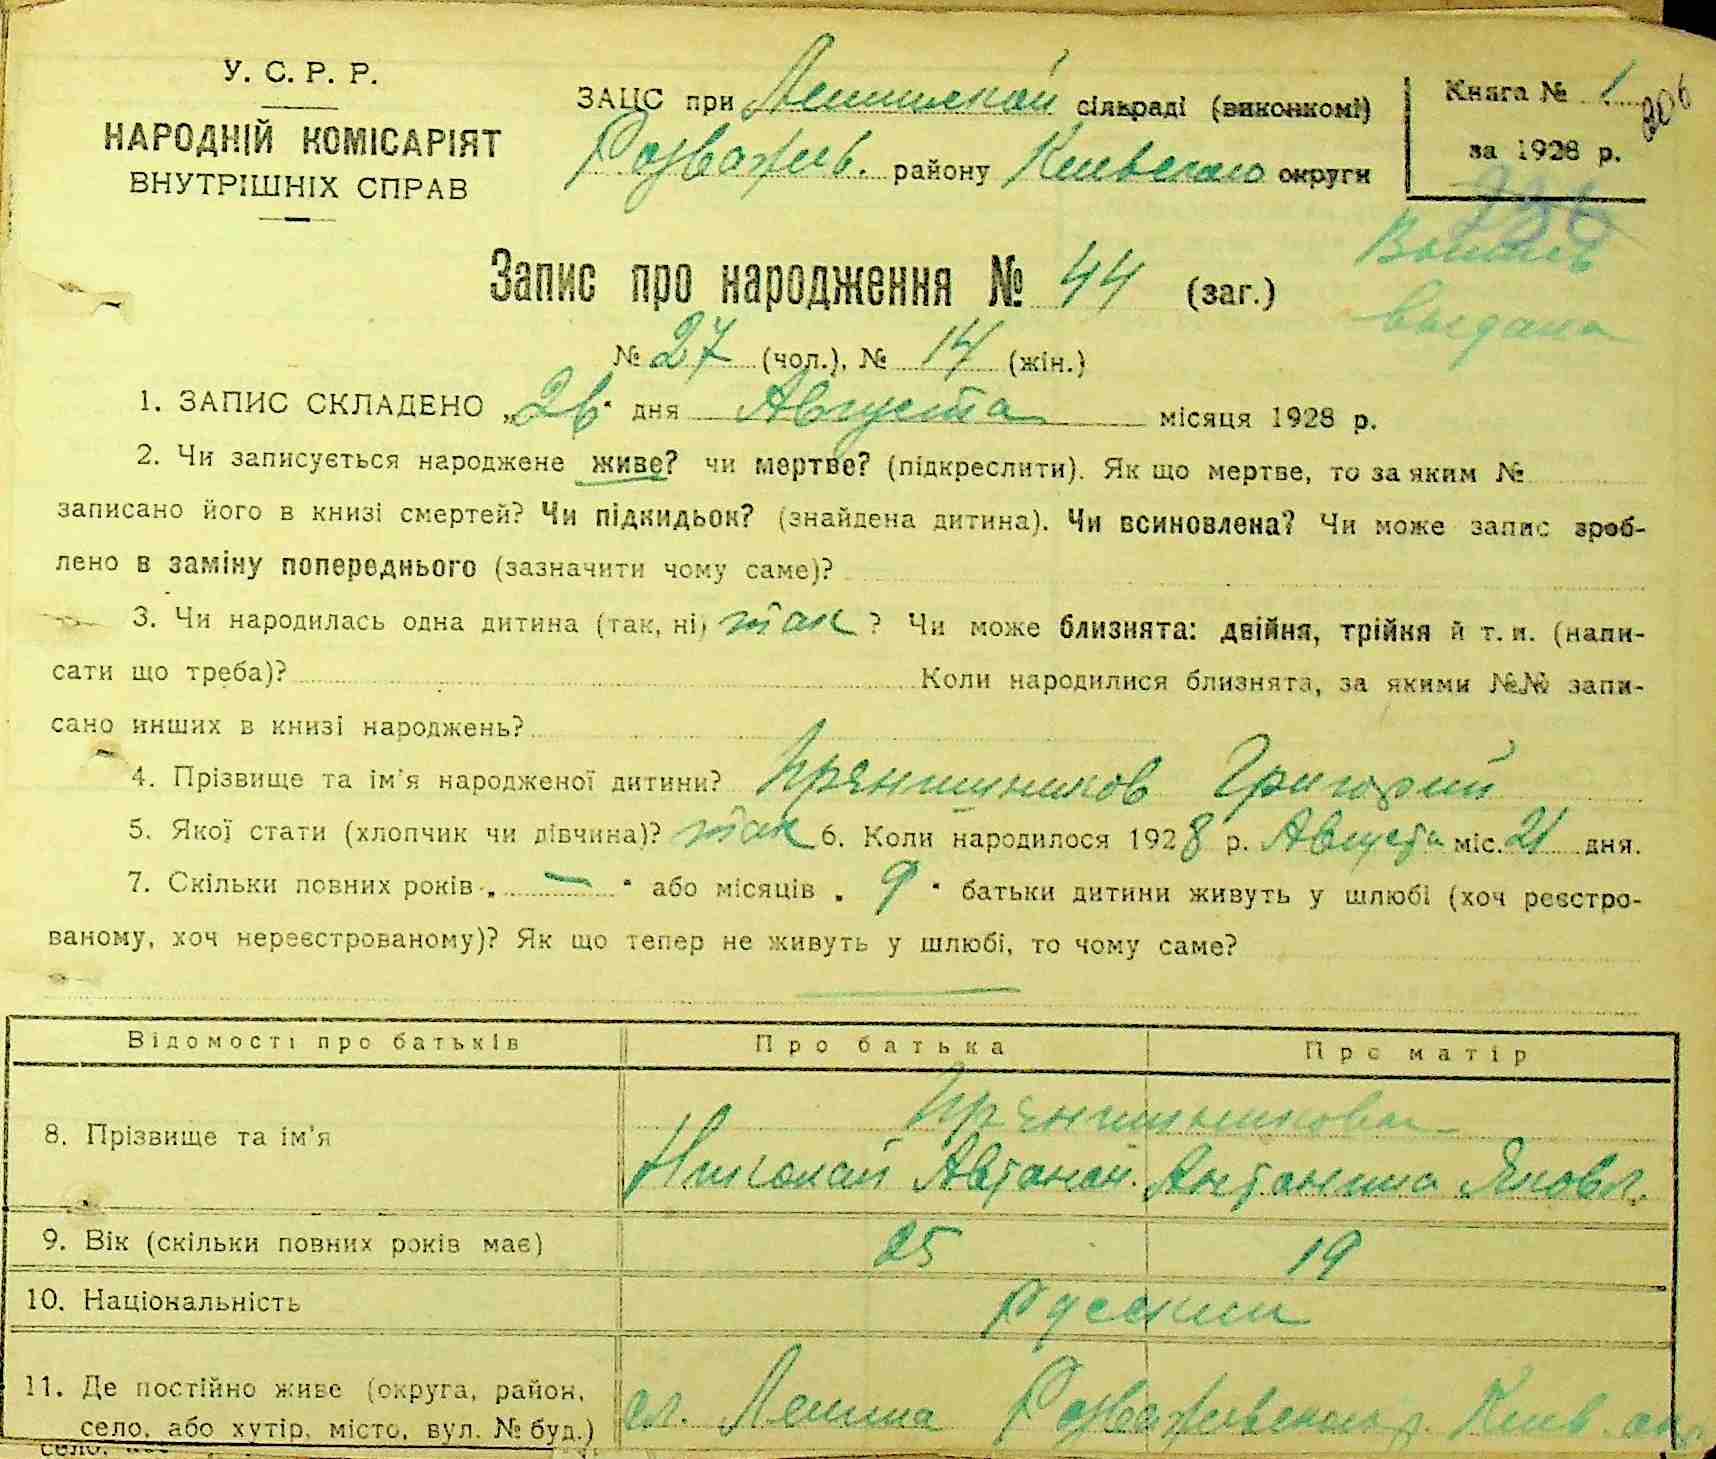 У. С. Р. Р.
НАРОДНІЙ КОМІСАРІЯТ
ВНУТРІШНІХ СПРАВ
ЗАЦС при Ленинской сільраді (виконкомі)
Розважев. району Киевского округи
Книга № 1
206
за 1928 р.
Выпись
выдана
Запис про народження № 44 (заг.)
№ 27 (чол.), № 14 (жін.)
1. ЗАПИС СКЛАДЕНО „26" дня Августа місяця 1928 р.
2. Чи записується народжене живе? чи мертве? (підкреслити). Як що мертве, то за яким №
записано його в книзі смертей? Чи підкидьок? (знайдена дитина). Чи всиновлена? Чи може запис зроб-
лено в заміну попереднього (зазначити чому саме)?
3. Чи народилась одна дитина (так, ні) так ? Чи може близнята: двійня, трійня й т. и. (напи-
сати що треба)? Коли народилися близнята, за якими №№ запи-
сано инших в книзі народжень?
4. Прізвище та ім'я народженої дитини? Прянишников Григорий
5. Якої стати (хлопчик чи дівчина)? так 6. Коли народилося 1928 р. Августа міс. 21 дня.
7. Скільки повних років „ — " або місяців „ 9 " батьки дитини живуть у шлюбі (хоч реєстро-
ваному, хоч нереєстрованому)? Як що тепер не живуть у шлюбі, то чому саме?
Відомості про батьків Про батька Про матір
Прянишникова
8. Прізвище та ім'я
Николай Антонина Яковл.
9. Вік (скільки повних років має) 25 19
10. Національність Русский
11. Де постійно живе (округа, район,
село, або хутір, місто, вул. № буд.) Ленина Розважевского р. Киев. окр.